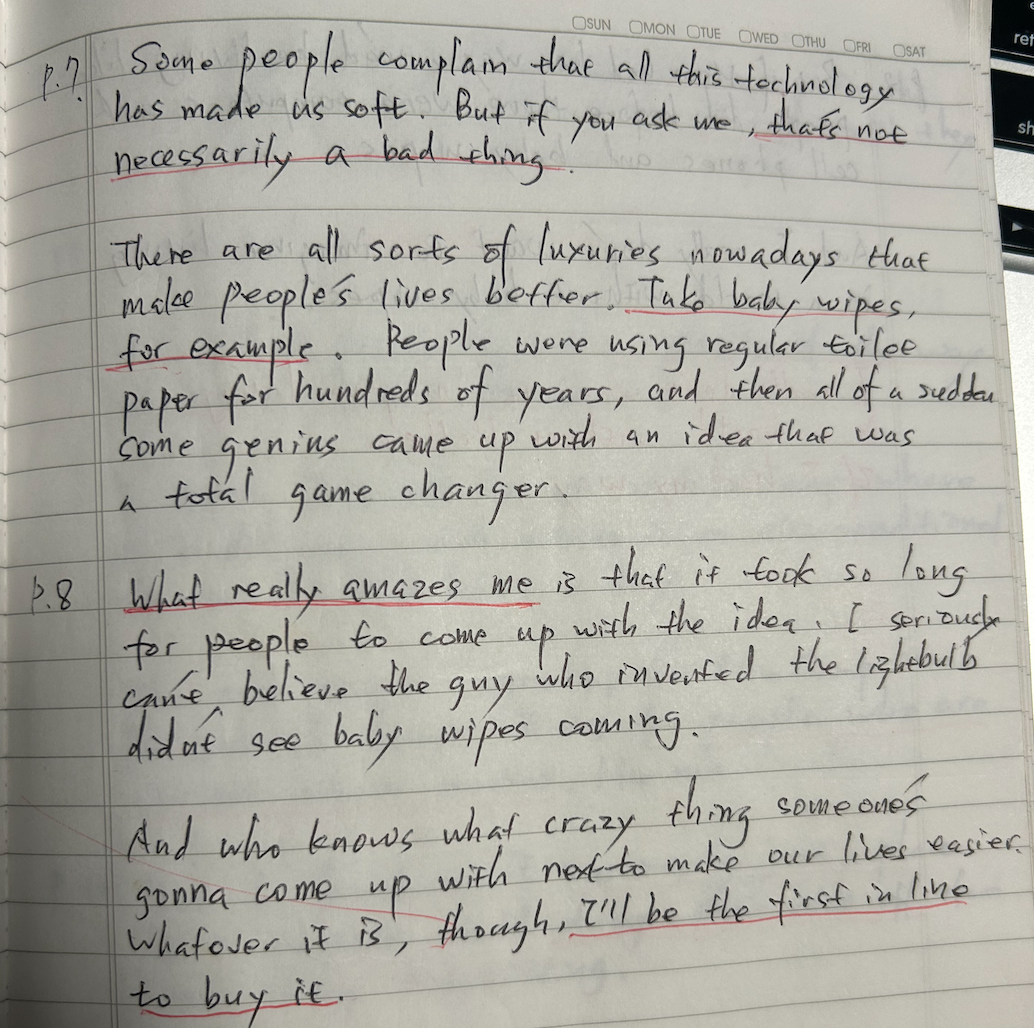 SUN MON TUE WED THU FRI SAT
p.7 Some people complain that all this technology
has made us soft. But if you ask me, that's not
necessarily a bad thing.
There are all sorts of luxuries nowadays that
make people's lives better. Take baby wipes,
for example. People were using regular toilet
paper for hundreds of years, and then all of a sudden
some genius came up with an idea that was
a total game changer.
p.8 What really amazes me is that it took so long
for people to come up with the idea. I seriously
can't believe the guy who invented the lightbulb
didn't see baby wipes coming.
And who knows what crazy thing someone's
gonna come up with next to make our lives easier.
Whatever it is, though, I'll be the first in line
to buy it.